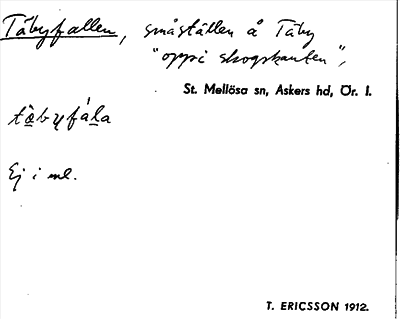 Täbyfallen, småställen å Täby
"oppi skogskanten",
St. Mellösa sn, Askers hd, Ör. l.
tä̀byfála
Ej i ml.
T. ERICSSON 1912.